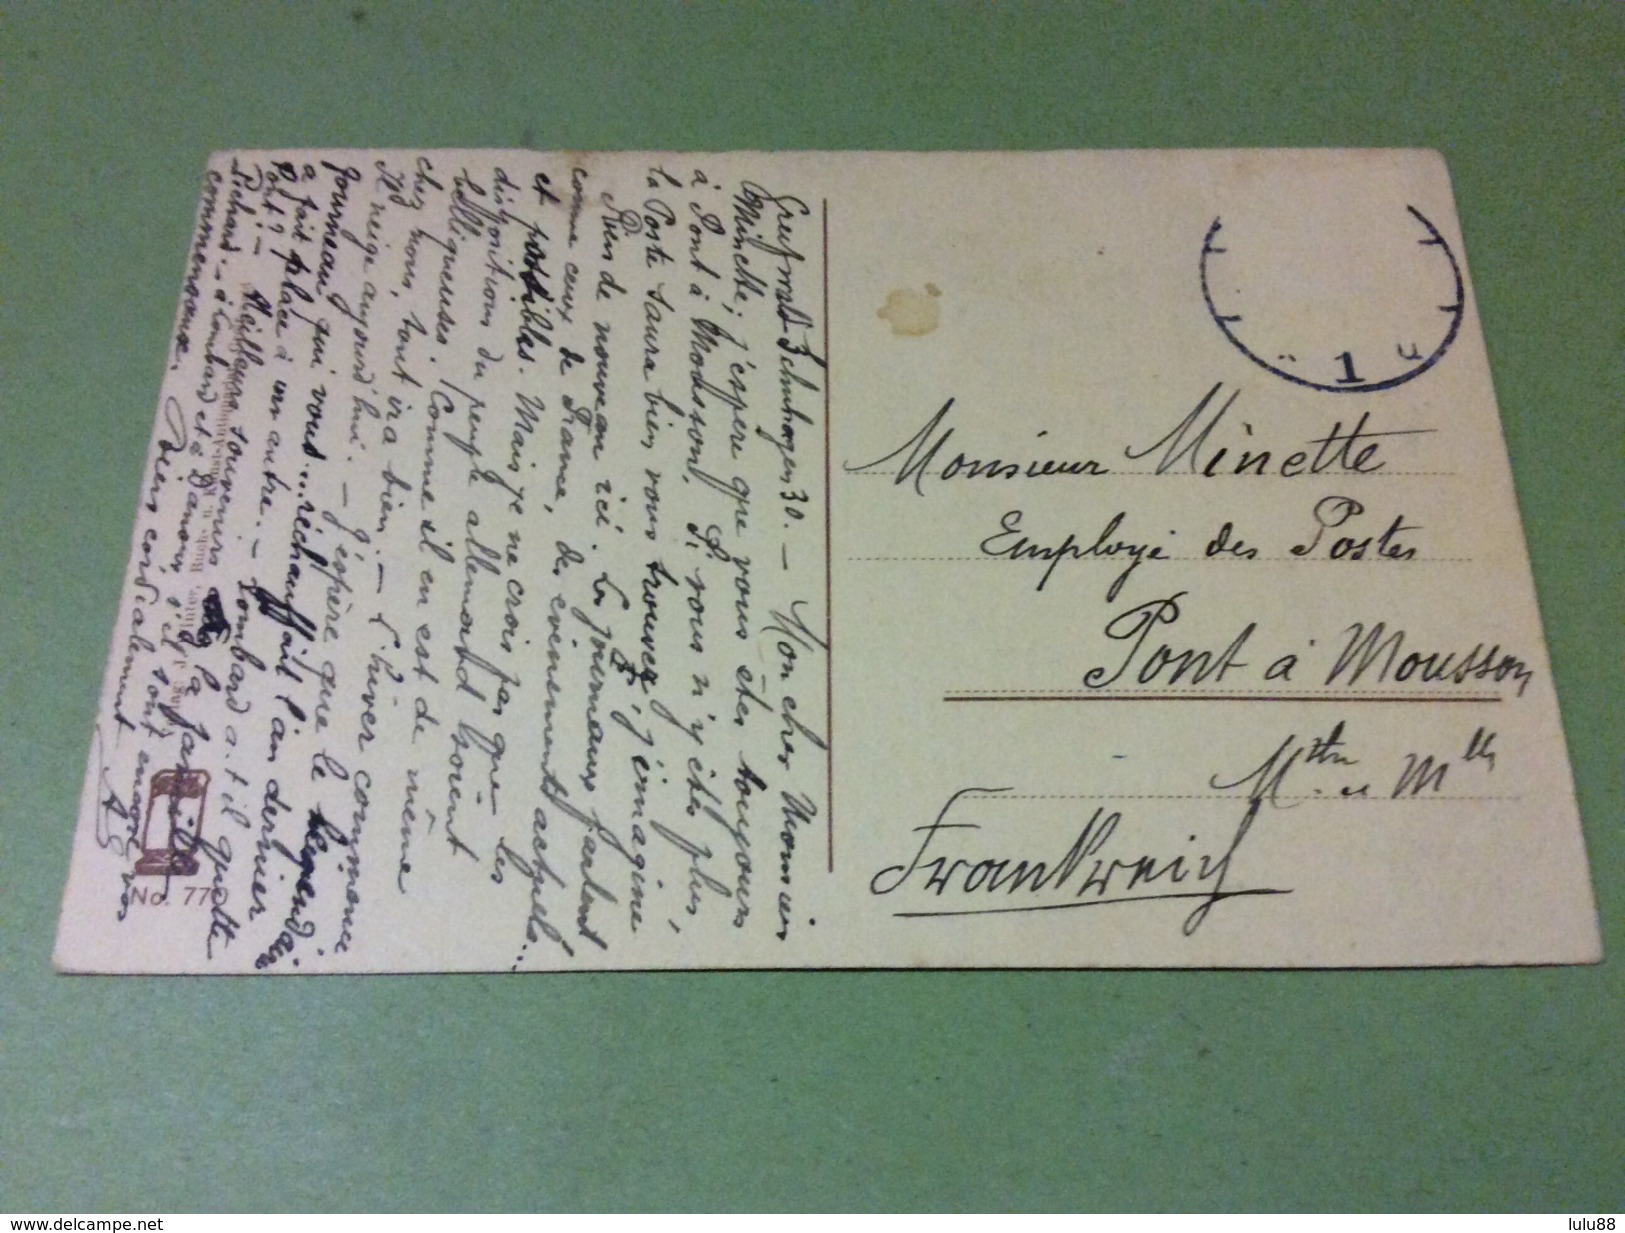 Greifswald Schuhagen 30. — Mon cher Monsieur
Minette, j'espère que vous êtes toujours
à Pont à Mousson. Si vous n'y êtes plus,
la Poste saura bien vous trouver, j'imagine
Rien de nouveau ici. Les journaux parlent
comme ceux de France, des évènements actuels...
et possibles. Mais je ne crois pas que les
dispositions du peuple allemand soient
belliqueuses. Comme il en est de même
chez nous, tout ira bien. — L'hiver commence
Il neige aujourd'hui. — J'espère que le
fourneau qui vous... réchauffait l'an dernier
a fait place à un autre. — Lombard a-t-il quitté
Pont ?
Meilleurs souvenirs à la famille
Richard — à Lombard et à s'il sont encore vos
commensaux. Bien cordialement
A
No. 77
1
Monsieur Minette
Employé des Postes
Pont à Mousson
Mrthe et Mlle
Frankreich
www.delcampe.net
lulu88